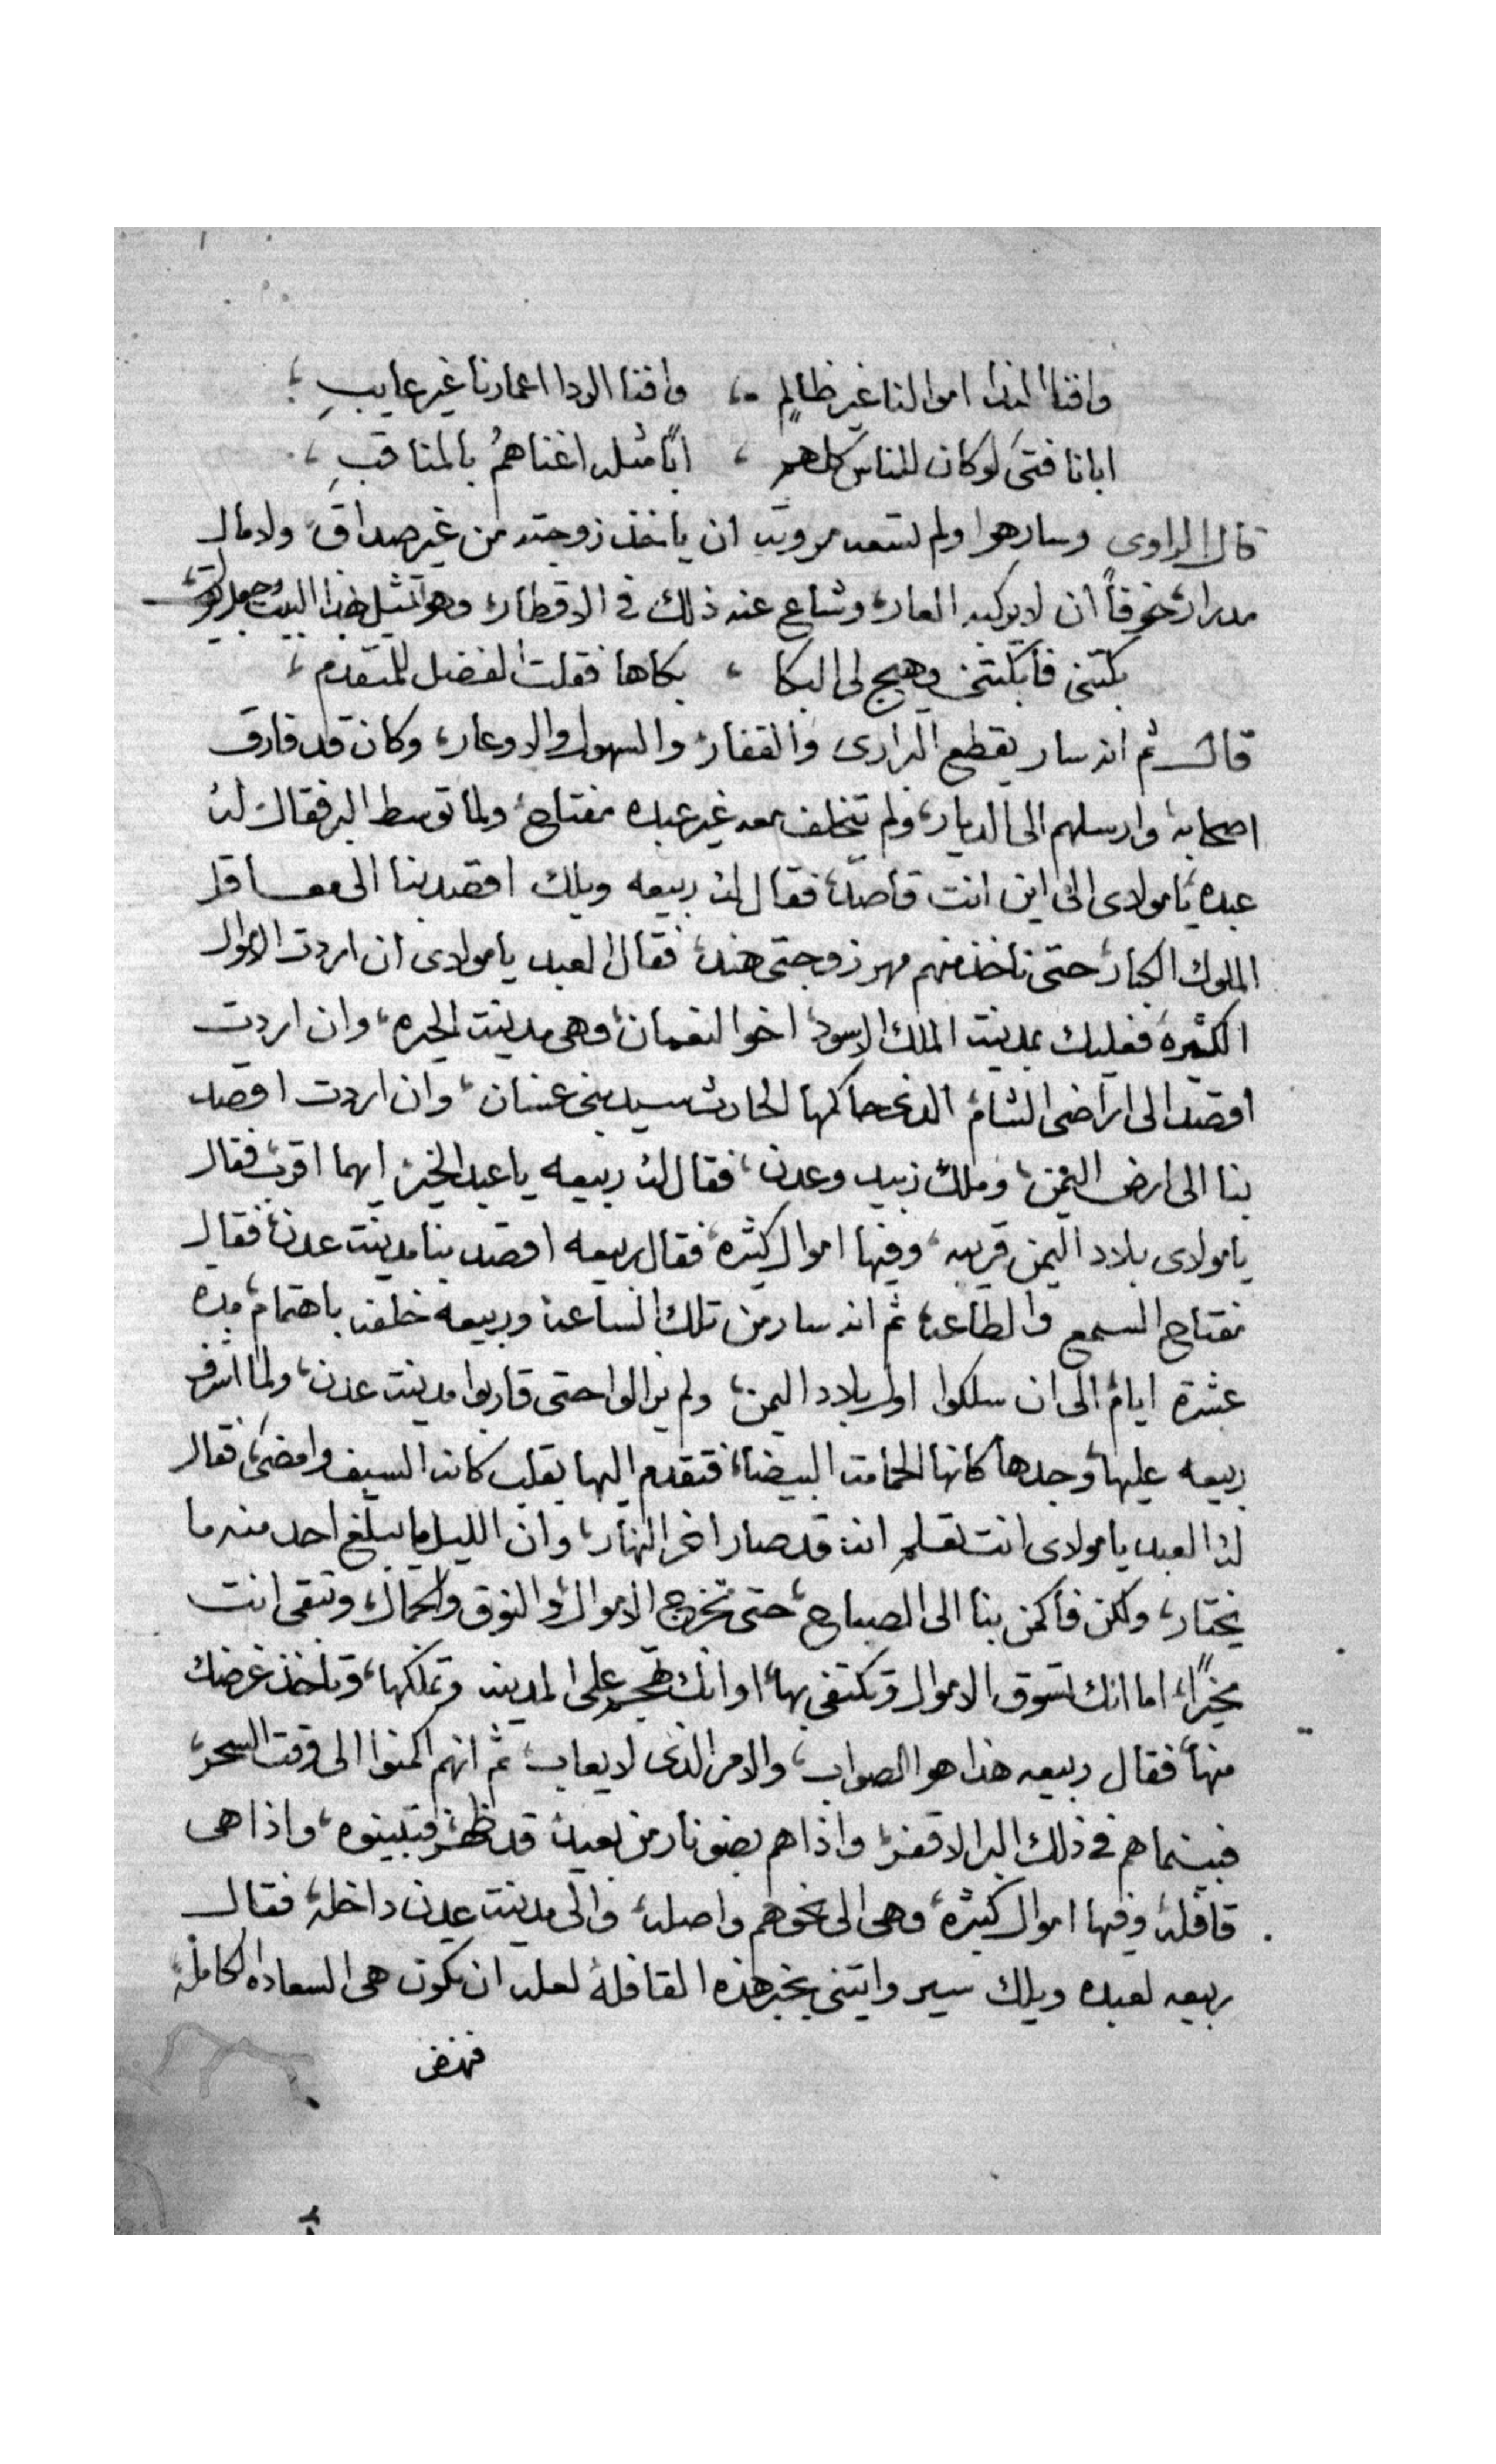 وافنا الندا اموالنا غير ظالمٍ ، وافنا الردا اعمارنا غير عايبِ ،
ابانا فتىً لوكان للناس كلهم ، ابًا مثله اغناهمُ بالمناقبِ ،
قال الراوى وسار هوا ولم تسعه مروته ان ياخذ زوجته من غير صداق، ولا مال
مدرار، خوفاً ان لا يركبه العار، وشاع عنه ذلك فى الاقطار، وهو تمثيل هذا البيت
بكتنى فأبكتنى وهيج لى البكا ، بكاها فقلت الفضل للمتقدم ،
قال ثم انه سار يقطع البرارى والقفار، والسهول والاوعار، وكان قد فارق
اصحابه، وارسلهم الى الديار، ولم يتخلف معه غير عبده مفتاح، ولما توسط البر فقال له
عبده يا مولاى الى اين انت قاصد، فقال له ربيعه ويلك اقصد بنا الى معاقل
الملوك الكبار، حتى ناخذ منهم مهر زوجتى هند، فقال العبد يا مولاى ان اردت الاموال
الكثيره فعليك بمدينت الملك الاسود، اخوا النعمان، وهى مدينت الحيره، وان اردت
اقصد الى اراضى الشام، الذى حاكمها الحارث سيد بنى غسان، وان اردت اقصد
بنا الى ارض اليمن، وملك زبيد وعدن، فقال له ربيعه يا عبد الخير، ايهما اقرب فقال
يا مولاى بلاد اليمن قريبه، وفيها اموال كثيره، فقال ربيعه اقصد بنا مدينت عدن، فقال
مفتاح السمع والطاعه، ثم انه سار من تلك الساعه وربيعه خلفه باهتمام، مده
عشرة ايام، الى ان سلكوا اول بلاد اليمن، ولم يزالوا حتى قاربوا مدينت عدن، ولما اشرف
ربيعه عليها، وجدها كانها الحمامت البيضا، فتقدم اليها بقلب كانه السيف وامضى، فقال
له العبد يا مولاى انت تعلم انه قد صار اخر النهار، وان الليل ما يبلغ احد منه ما
يختار، ولكن فأكمن بنا الى الصباح، حتى تخرج الاموال، والنوق والجمال، وتبقى انت
مخيرًا، اما انك تسوق الاموال وتكتفى بها، او انك تهجم على المدينه وتملكها، وتاخذ غرضك
منها، فقال ربيعه هذا هو الصواب، والامر الذى لا يعاب، ثم انهم اكمنوا الى وقت السحر،
فبينما هم فى ذلك البر الاقفر، واذا هم بضو نار من بعيد، قد ظهر، فتبينوه، واذا هى
قافله، وفيها اموال كثيره، وهى الى نحوهم واصله، والى مدينت عدن داخله، فقال
ربيعه لعبده ويلك سير وايتنى بخبر هذه القافله لعله ان يكون هى السعاده الكامله،
فنهض